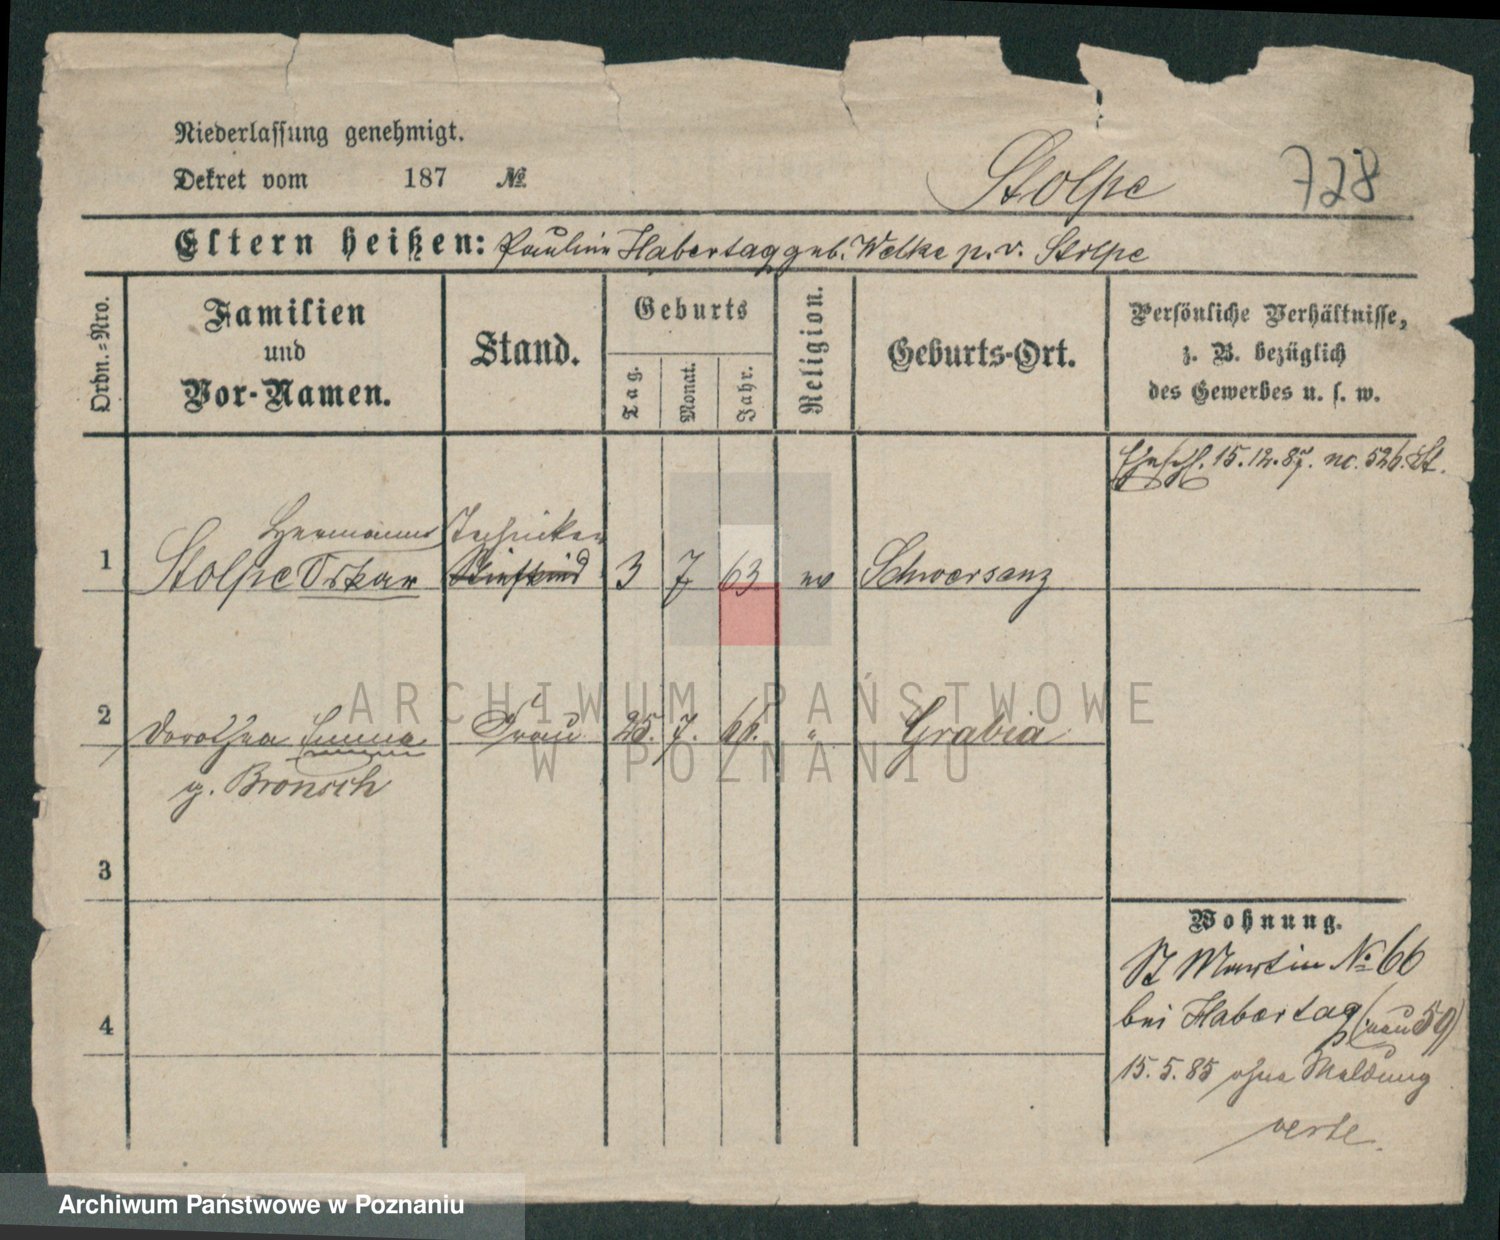 Niederlassung genehmigt.
Dekret vom 187 №
Stolpe 728
Eltern heißen: Pauline Habertag geb. Welke p. v. Stolpe
Ordn.-Nro.
Familien
und
Vor-Namen.
Stand.
Geburts
Tag.
Monat.
Jahr.
Religion.
Geburts-Ort.
Persönliche Verhältnisse,
z. B. bezüglich
des Gewerbes u. s. w.
Ehesch. 15.12.87. no. 526. St.
Hermann Techniker
1 Stolpe Oskar Stiefkind 3 7 63 ev Schwersenz
2 Dorothea Emma Frau 25. 7. 66. " Grabia
g. Bronsch
3
Wohnung.
St Martin No 66
4
bei Habertag (neu 59)
15. 5. 85 ohne Meldung
verte.
ARCHIWUM PAŃSTWOWE
W POZNANIU
Archiwum Państwowe w Poznaniu